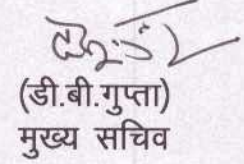 (डी.बी.गुप्ता)
मुख्य सचिव